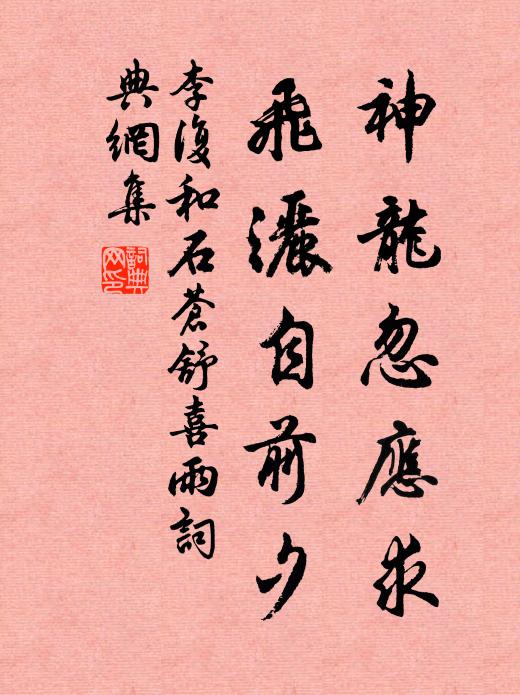 神龍忽應求
飛灑自前夕
李復和石蒼舒喜雨詞
典網集
詞典網印